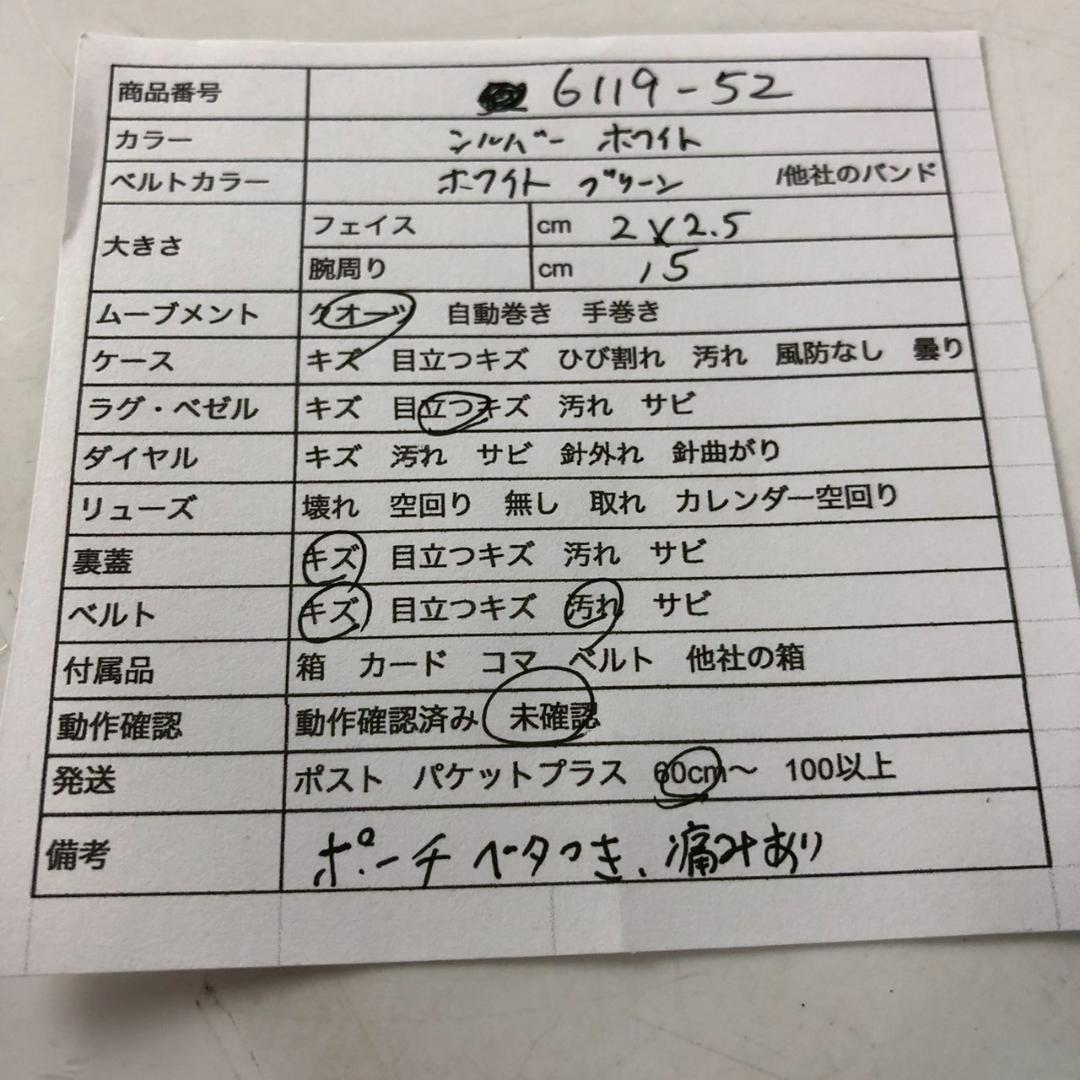 商品番号 6119-52
カラー シルバー ホワイト
ベルトカラー ホワイト グリーン /他社のバンド
大きさ フェイス cm 2×2.5
腕周り cm 15
ムーブメント クオーツ 自動巻き 手巻き
ケース キズ 目立つキズ ひび割れ 汚れ 風防なし 曇り
ラグ・ベゼル キズ 目立つキズ 汚れ サビ
ダイヤル キズ 汚れ サビ 針外れ 針曲がり
リューズ 壊れ 空回り 無し 取れ カレンダー空回り
裏蓋 キズ 目立つキズ 汚れ サビ
ベルト キズ 目立つキズ 汚れ サビ
付属品 箱 カード コマ ベルト 他社の箱
動作確認 動作確認済み 未確認
発送 ポスト パケットプラス 60cm〜 100以上
備考 ポーチ ベタつき、痛みあり